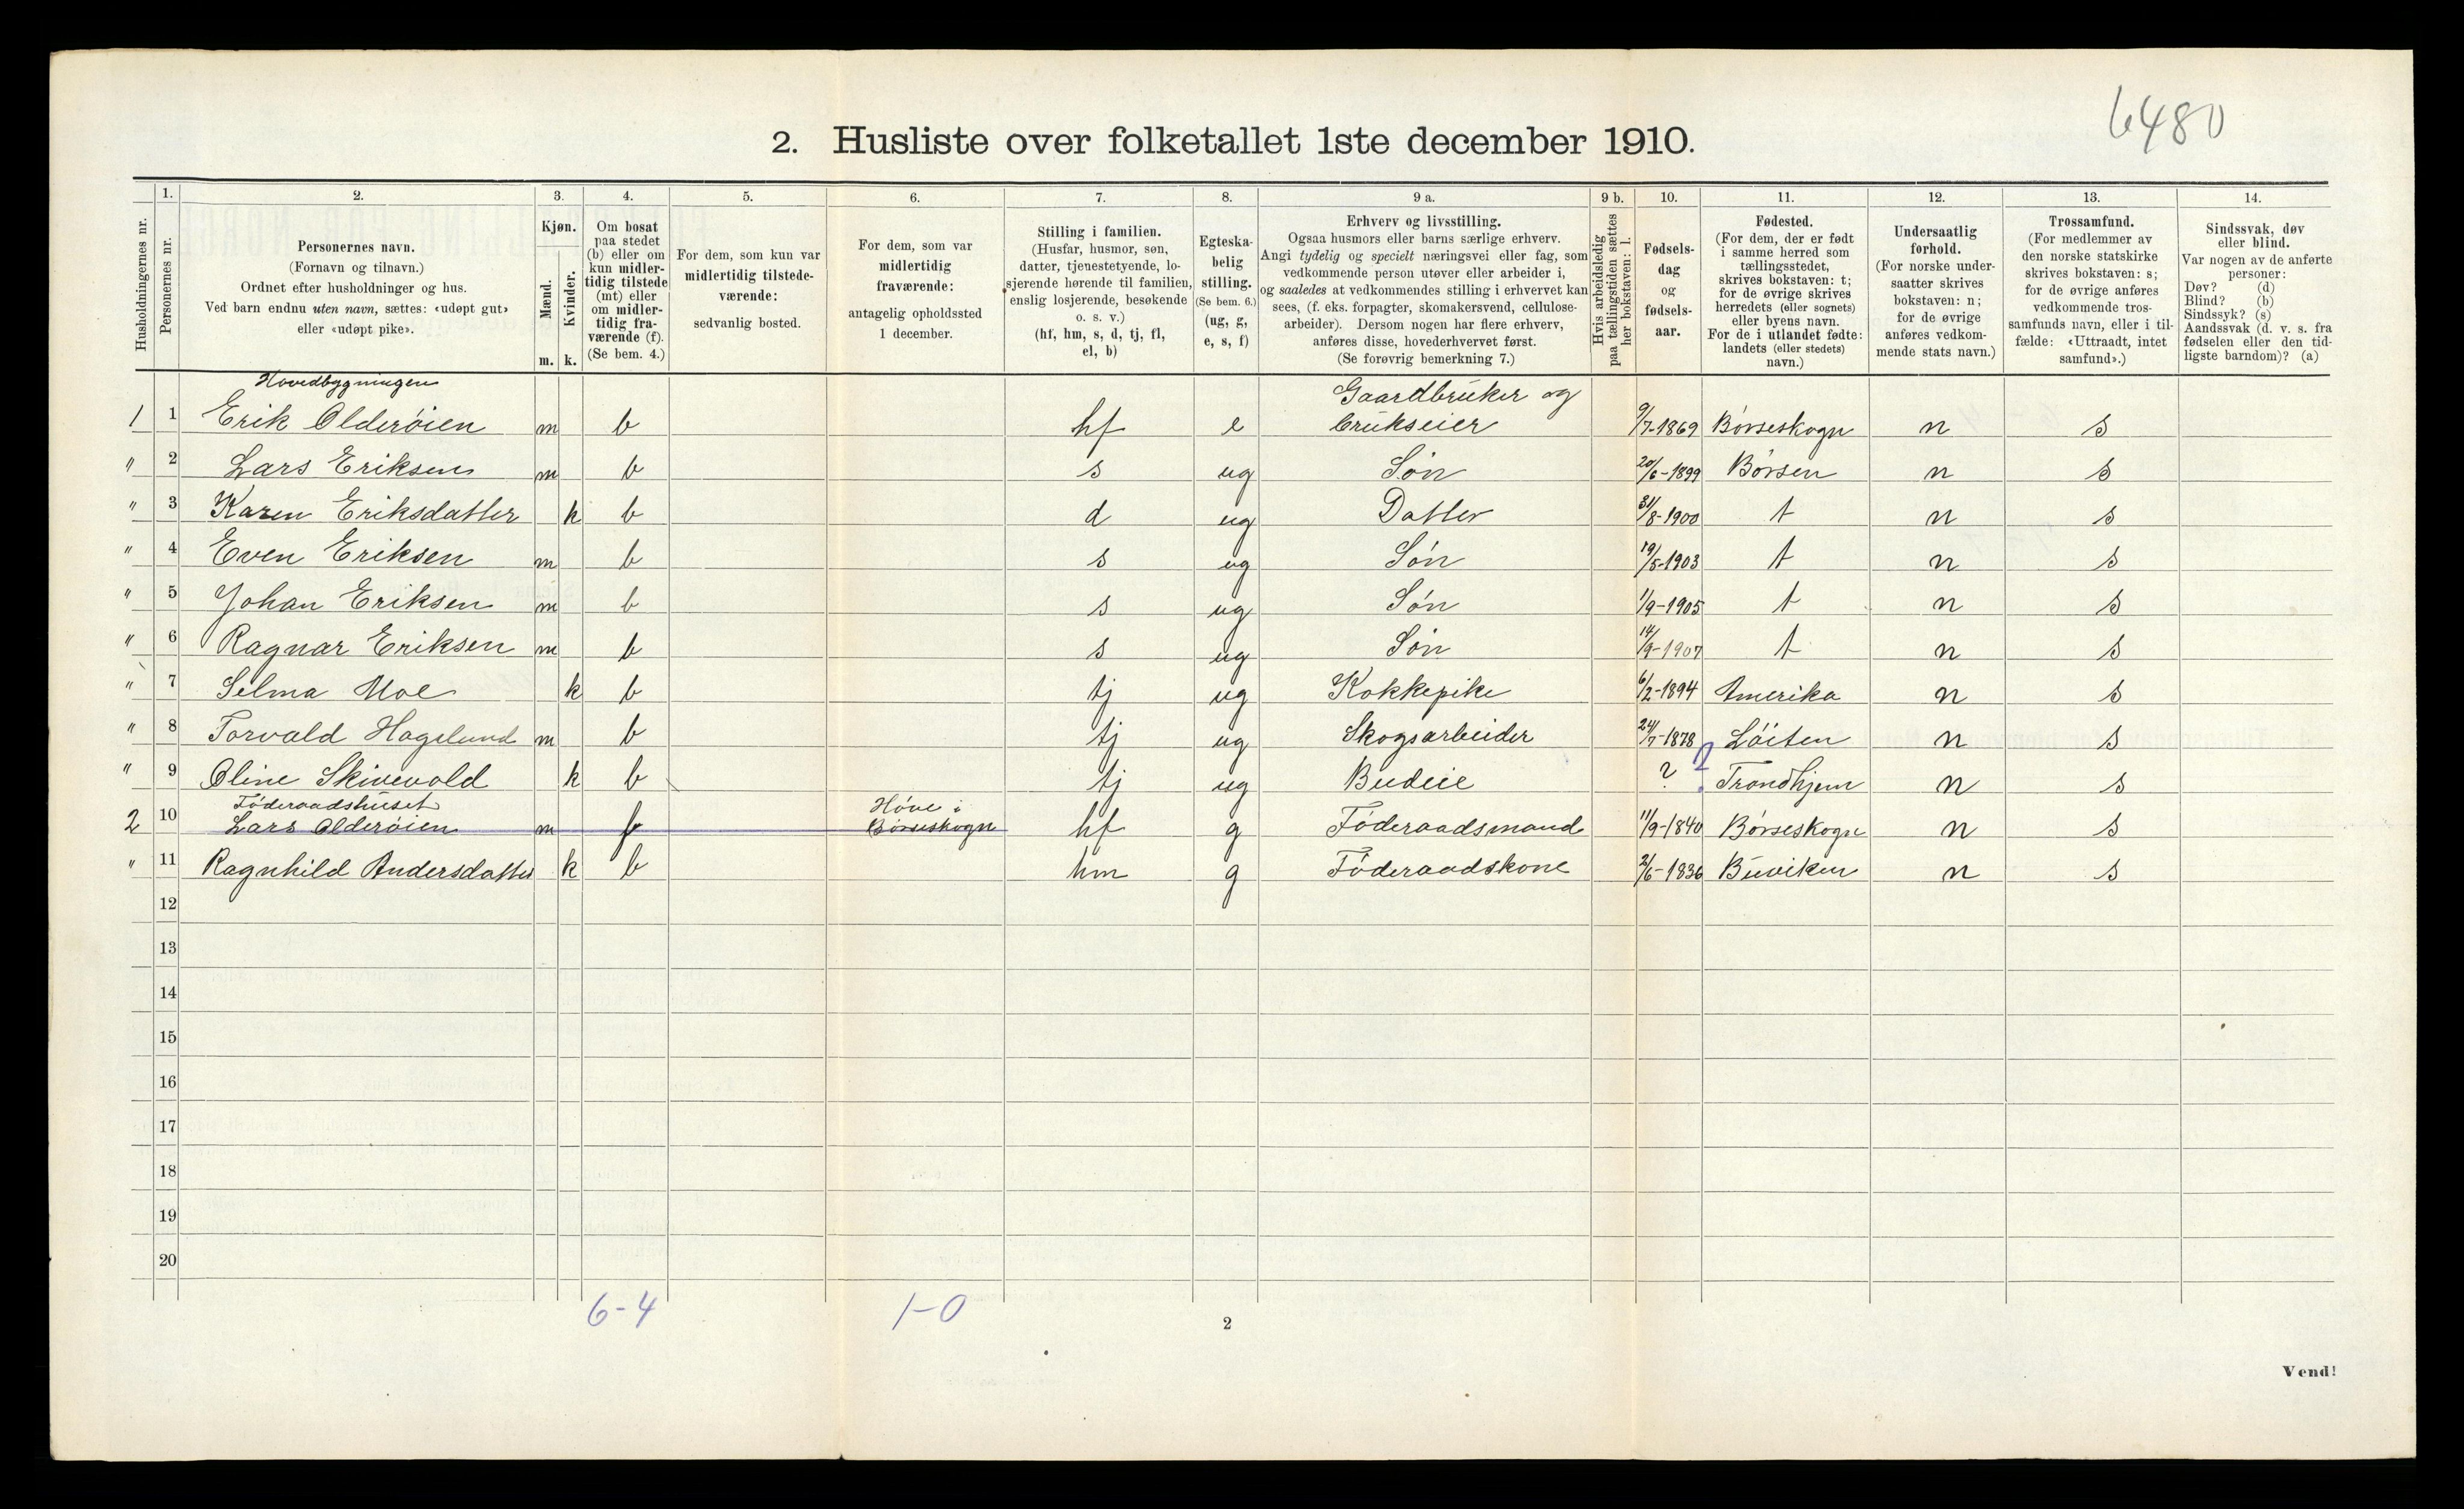 6480
2. Husliste over folketallet 1ste december 1910.
Husholdningernes nr.
1.
Personernes nr.
2.
Personernes navn.
(Fornavn og tilnavn.)
Ordnet efter husholdninger og hus.
Ved barn endnu uten navn, sættes: «udøpt gut»
eller «udøpt pike».
3.
Kjøn.
Mænd.
Kvinder.
m. k.
4.
Om bosat
paa stedet
(b) eller om
kun midler-
tidig tilstede
(mt) eller
om midler-
tidig fra-
værende (f).
(Se bem. 4.)
5.
For dem, som kun var
midlertidig tilstede-
værende:
sedvanlig bosted.
6.
For dem, som var
midlertidig
fraværende:
antagelig opholdssted
1 december.
7.
Stilling i familien.
(Husfar, husmor, søn,
datter, tjenestetyende, lo-
sjerende hørende til familien,
enslig losjerende, besøkende
o. s. v.)
(hf, hm, s, d, tj, fl,
el, b)
8.
Egteska-
belig
stilling.
(Se bem. 6.)
(ug, g,
e, s, f)
9 a.
Erhverv og livsstilling.
Ogsaa husmors eller barns særlige erhverv.
Angi tydelig og specielt næringsvei eller fag, som
vedkommende person utøver eller arbeider i,
og saaledes at vedkommendes stilling i erhvervet kan
sees, (f. eks. forpagter, skomakersvend, cellulose-
arbeider). Dersom nogen har flere erhverv,
anføres disse, hovederhvervet først.
(Se forøvrig bemerkning 7.)
9 b.
Hvis arbeidsledig
paa tællingstiden sættes
her bokstaven: l.
10.
Fødsels-
dag
og
fødsels-
aar.
11.
Fødested.
(For dem, der er født
i samme herred som
tællingsstedet,
skrives bokstaven: t;
for de øvrige skrives
herredets (eller sognets)
eller byens navn.
For de i utlandet fødte:
landets (eller stedets)
navn.)
12.
Undersaatlig
forhold.
(For norske under-
saatter skrives
bokstaven: n;
for de øvrige
anføres vedkom-
mende stats navn.)
13.
Trossamfund.
(For medlemmer av
den norske statskirke
skrives bokstaven: s;
for de øvrige anføres
vedkommende tros-
samfunds navn, eller i til-
fælde: «Uttraadt, intet
samfund».)
14.
Sindssvak, døv
eller blind.
Var nogen av de anførte
personer:
Døv? (d)
Blind? (b)
Sindssyk? (s)
Aandssvak (d. v. s. fra
fødselen eller den tid-
ligste barndom)? (a)
Hovedbygningen
1 1 Erik Olderøien m b hf e Gaardbruker og brukseier 9/7-1869 Børseskogn n s
" 2 Lars Eriksen m b s ug Søn 20/6-1899 Børsen n s
" 3 Karen Eriksdatter k b d ug Datter 31/8-1900 t n s
" 4 Even Eriksen m b s ug Søn 19/5-1903 t n s
" 5 Johan Eriksen m b s ug Søn 1/9-1905 t n s
" 6 Ragnar Eriksen m b s ug Søn 14/9-1907 t n s
" 7 Selma Moe k b tj ug Kokkepike 6/2-1894 Amerika n s
" 8 Torvald Hagelund m b tj ug Skogsarbeider 24/7-1878 Løiten n s
" 9 Oline Skivevold k b tj ug Budeie ? ? Trondhjem n s
Føderaadshuset
2 10 Lars Olderøien m f Høve i Børseskogn hf g Føderaadsmand 11/9-1840 Børseskogn n s
" 11 Ragnhild Andersdatter k b hm g Føderaadskone 2/6-1836 Buviken n s
12
13
14
15
16
17
18
19
20
6-4 1-0
2
Vend!